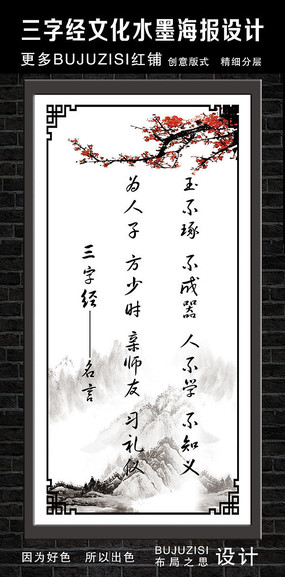 三字经文化水墨海报设计
更多BUJUZISI红铺 创意版式 精细分层
玉不琢 不成器 人不学 不知义
为人子 方少时 亲师友 习礼仪
三字经——名言
因为好色 所以出色
BUJUZISI
布局之思
设计